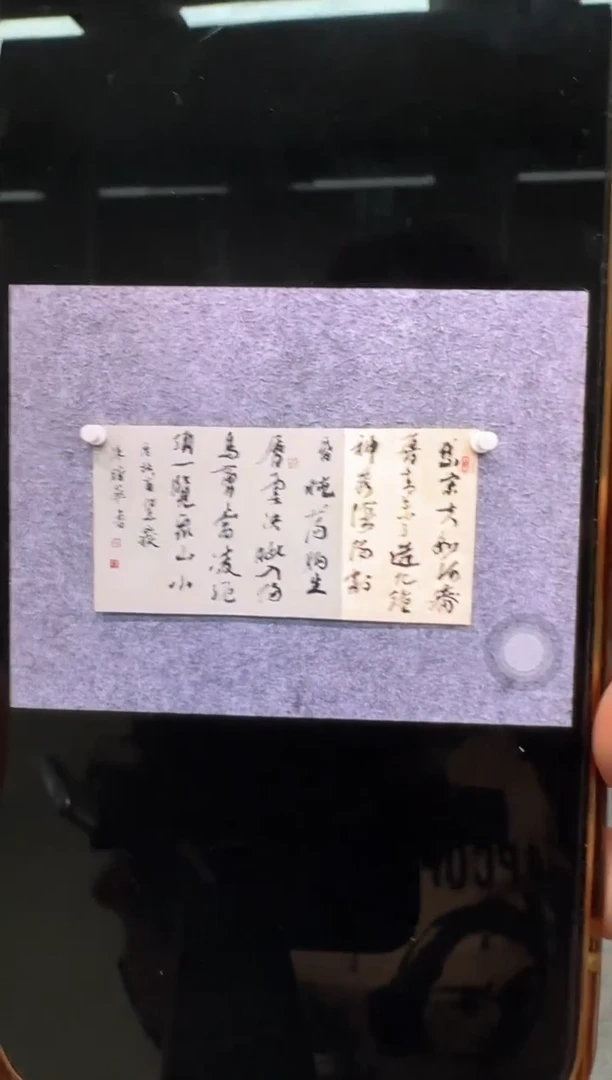 岱宗夫如何齊
魯青未了造化鍾
神秀陰陽割
昏曉蕩胸生
層雲決眦入歸
鳥會當凌絕
頂一覽众山小
唐杜甫望嶽